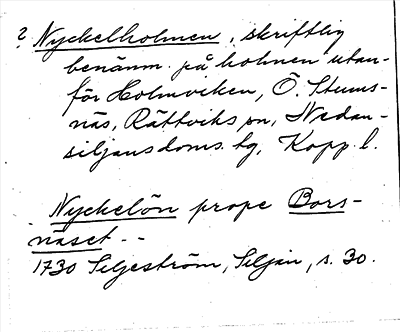 ? Nyckelholmen, skriftlig
benämn. på holmen utan-
för Holmviken, Ö. Stums-
näs, Rättviks sn, Nedan-
siljans doms. hg, Kopp. l.
Nyckelön prope Bors-
näset - -
1730 Seljeström, Seljan, s. 30.